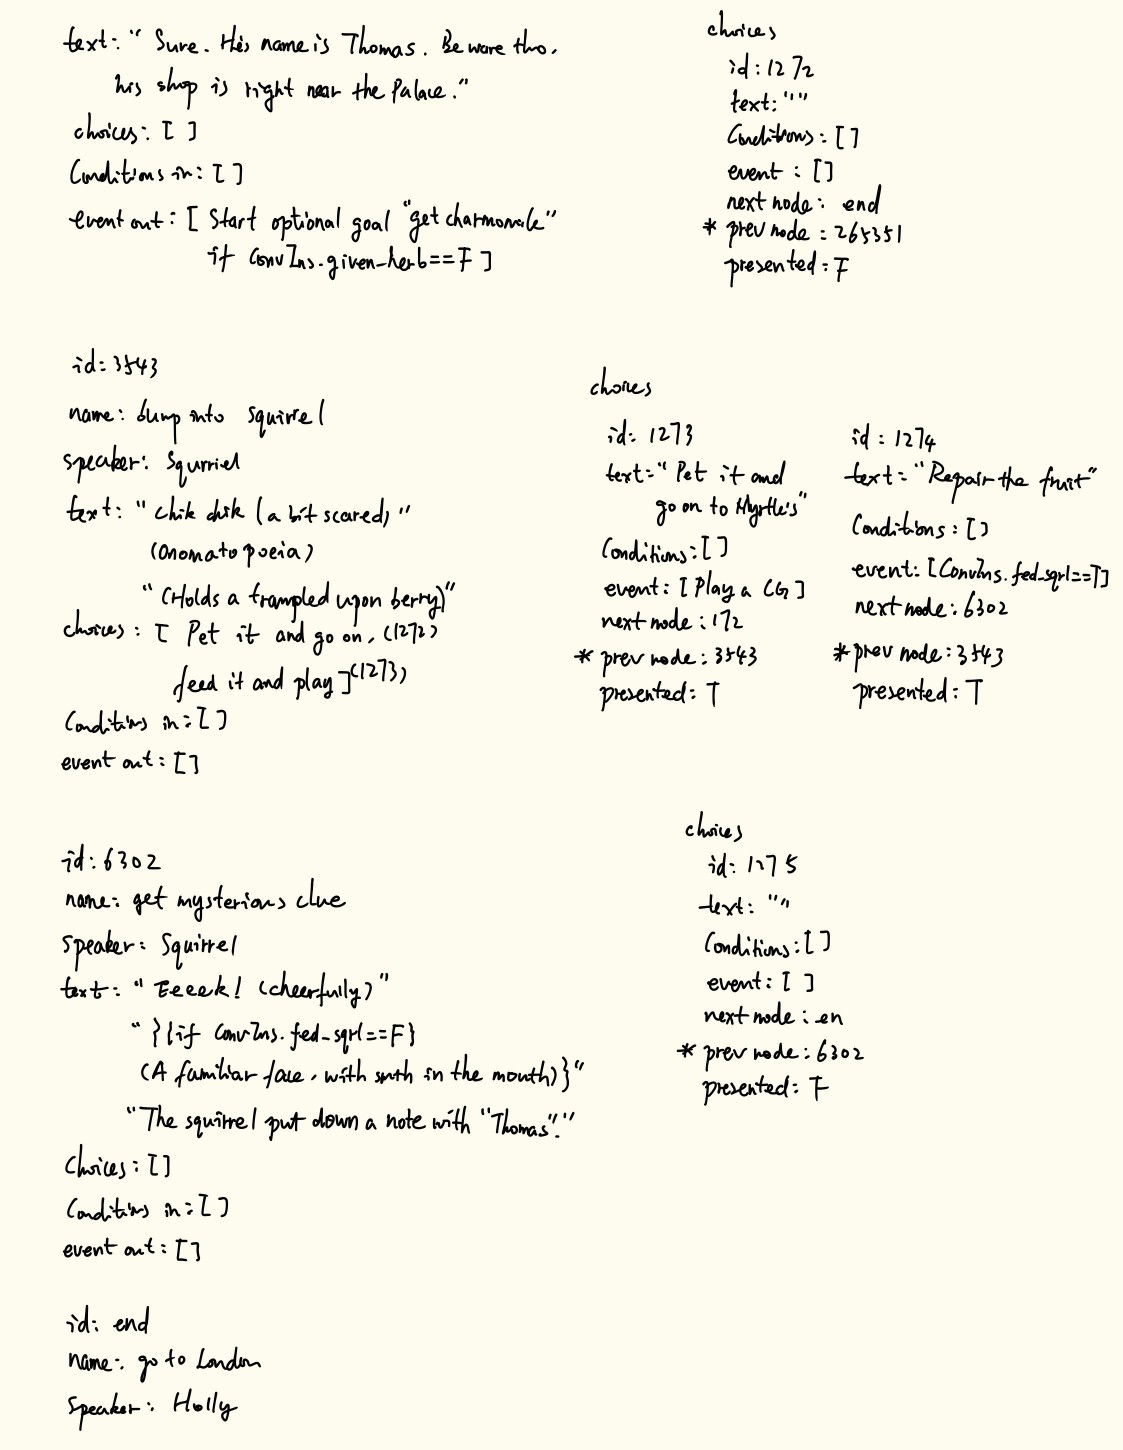 text: "Sure. His name is Thomas. Beware tho,
his shop is right near the Palace."
choices: [ ]
Conditions in: [ ]
event out: [ Start optional goal "get charmomile"
if ConvIns.given_herb==F ]
choices
id: 1272
text: ""
Conditions: []
event : []
next node: end
* prev node : 265351
presented: F
id: 3543
name: bump into squirrel
speaker: Squrriel
text: " chik chik (a bit scared) "
(onomatopoeia)
" (Holds a trampled upon berry)"
choices : [ Pet it and go on, (1272)
feed it and play ] (1273)
Conditions in: []
event out: []
choices
id: 1273
text: "Pet it and
go on to Myrtle's"
Conditions: []
event: [ Play a CG ]
next node: 172
* prev node: 3543
presented: T
id: 1274
text: "Repair the fruit"
Conditions: []
event: [ConvIns.fed_sqrl==T]
next node: 6302
* prev node: 3543
presented: T
id: 6302
name: get mysterious clue
speaker: Squirrel
text: " Eeeek! (cheerfully) "
" }{if ConvIns.fed_sqrl==F}
(A familiar face, with smth in the mouth)}"
"The squirrel put down a note with "Thomas"."
Choices: []
Conditions in: []
event out: []
choices
id: 1275
text: ""
Conditions: []
event: [ ]
next node: en
* prev node: 6302
presented: F
id: end
name: go to London
speaker: Holly